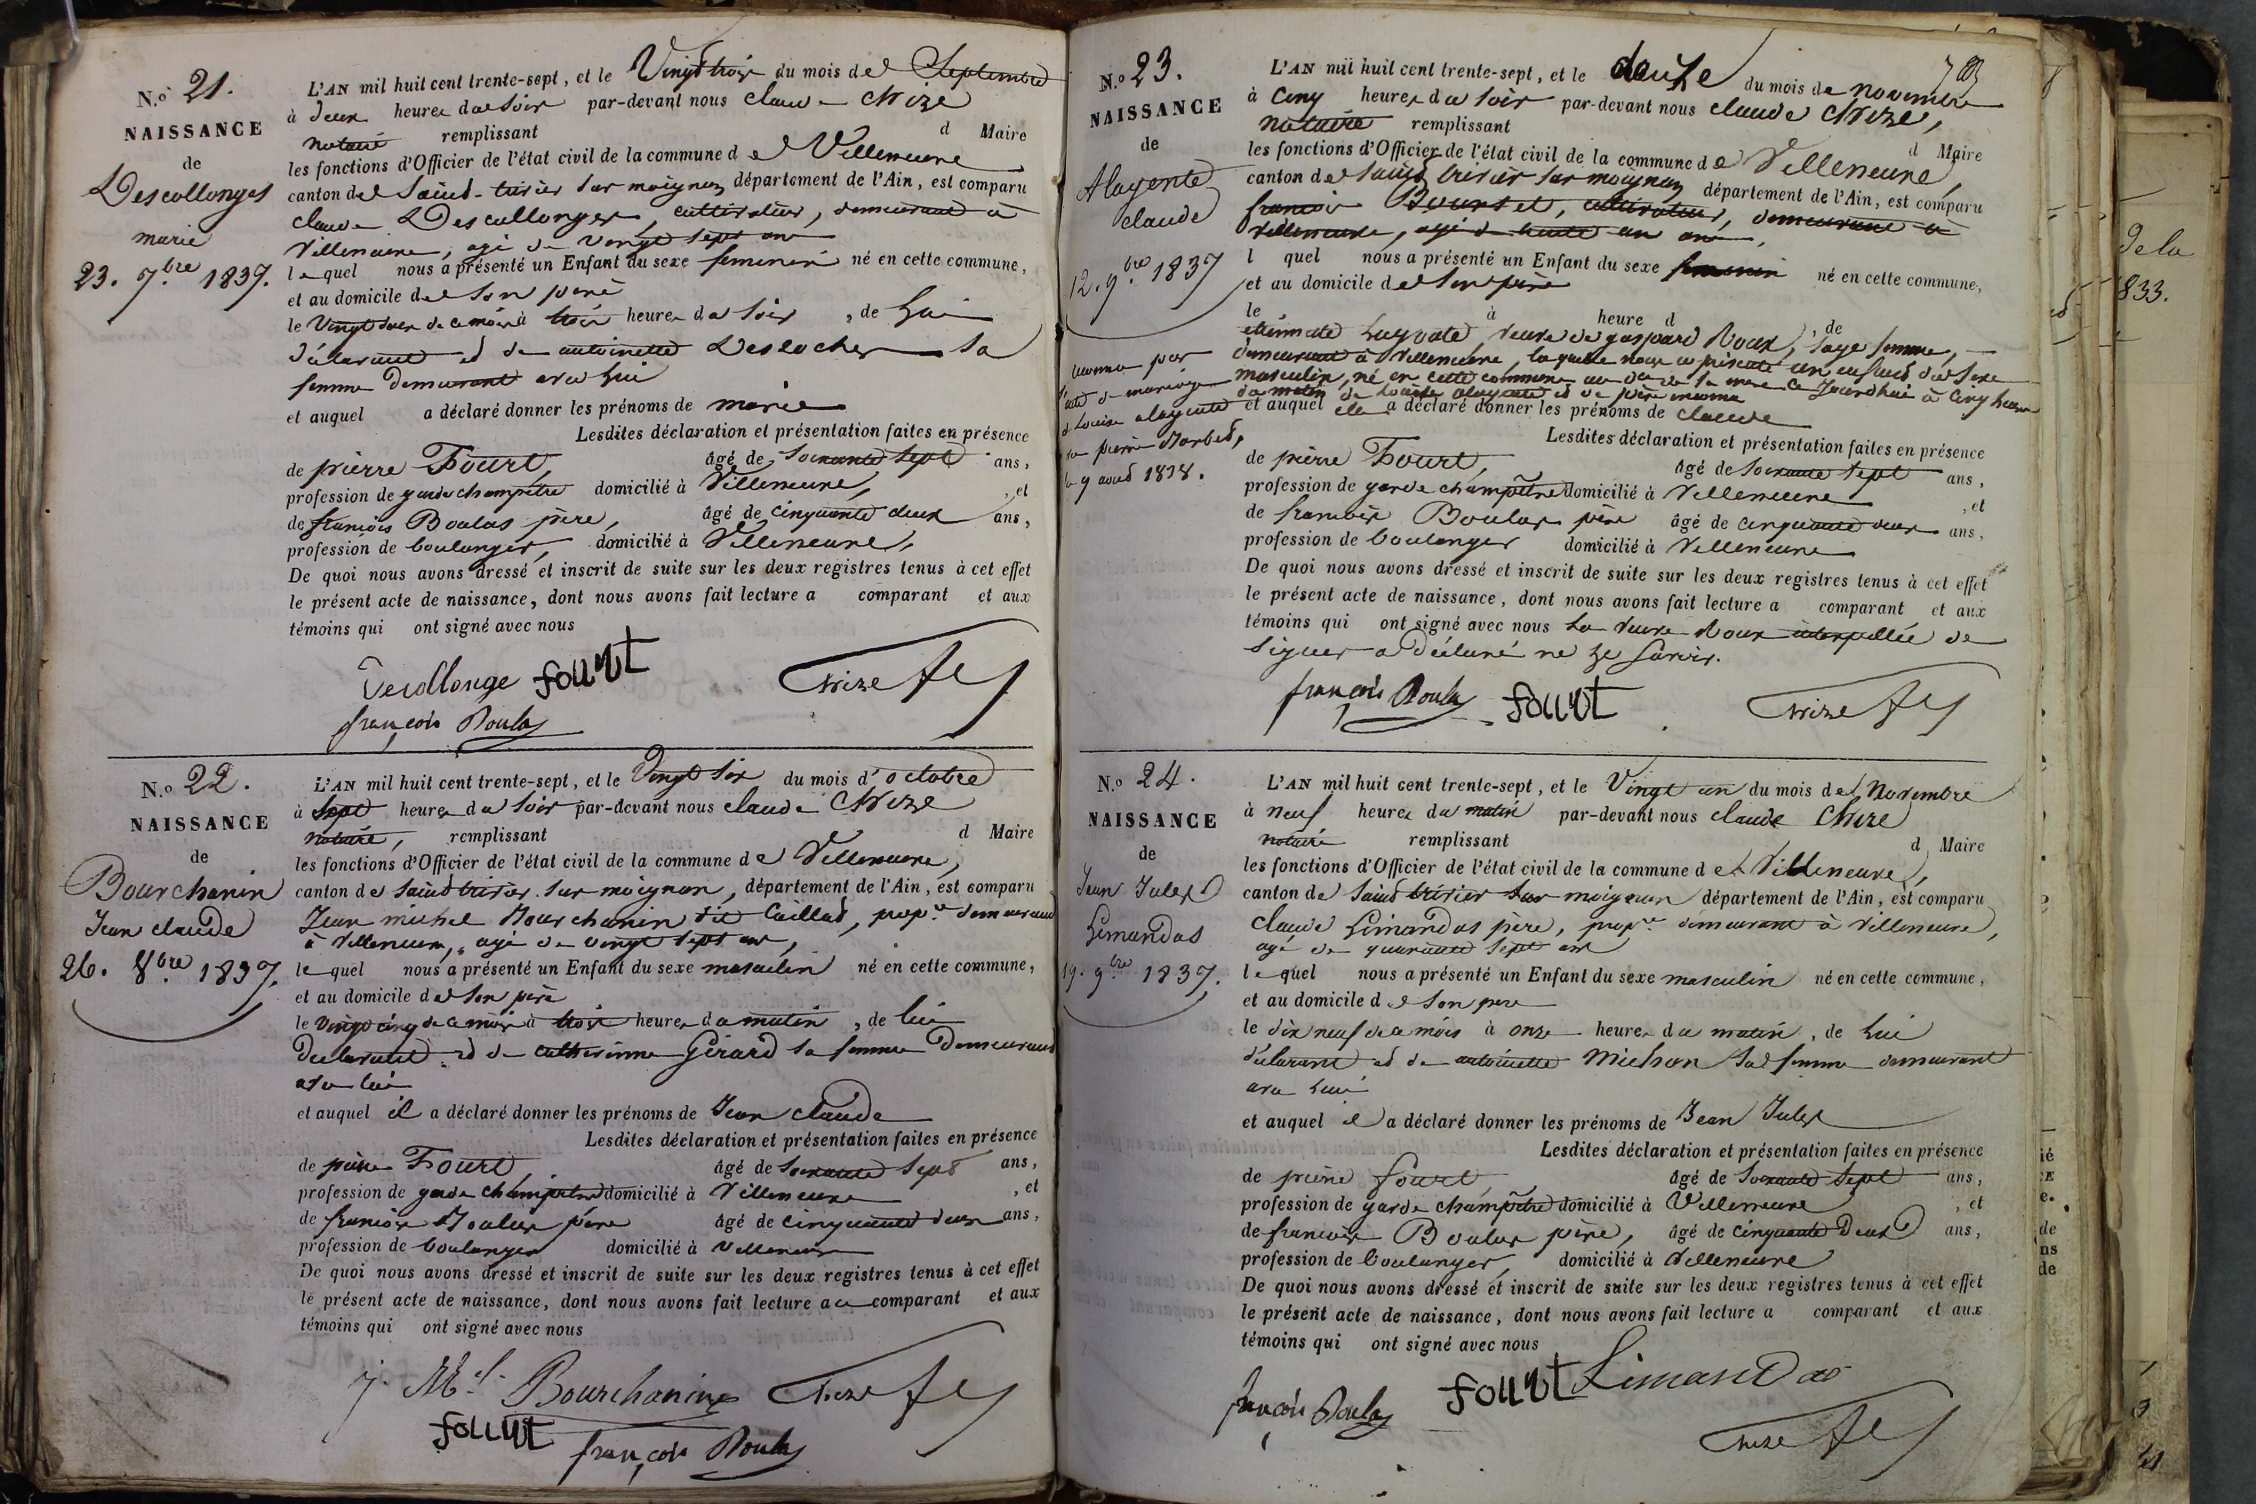 N.o 21.
NAISSANCE
de
Descollonges
marie
23. 7.bre 1837.
L'AN mil huit cent trente-sept, et le Vingt trois du mois de Septembre
à deux heures du soir par-devant nous claude Chize
notaire remplissant d Maire
les fonctions d'Officier de l'état civil de la commune de Villeneuve
canton de Saint-trivier sur moignan département de l'Ain, est comparu
claude Descollonges, cultivateur, demeurant à
Villeneuve, agé de vingt sept ans
lequel nous a présenté un Enfant du sexe feminin né en cette commune,
et au domicile de son père
le Vingt trois de ce mois à trois heures du soir, de lui
déclarant et de antoinette Desrocher sa
femme demeurant avec lui
et auquel a déclaré donner les prénoms de marie
Lesdites déclaration et présentation faites en présence
de pierre Fourt, âgé de soixante sept ans,
profession de garde champêtre domicilié à Villeneuve, et
de françois Boulas père, âgé de cinquante deux ans,
profession de boulanger, domicilié à Villeneuve,
De quoi nous avons dressé et inscrit de suite sur les deux registres tenus à cet effet
le présent acte de naissance, dont nous avons fait lecture a comparant et aux
témoins qui ont signé avec nous
Decollonge fourt Chize
françois Boulas
N.o 22.
NAISSANCE
de
Bourchanin
Jean claude
26. 8.bre 1837.
L'AN mil huit cent trente-sept, et le Vingt six du mois d'octobre
à sept heures du soir par-devant nous claude Chize
notaire, remplissant d Maire
les fonctions d'Officier de l'état civil de la commune de Villeneuve,
canton de saint trivier sur moignan, département de l'Ain, est comparu
Jean michel Bourchanin dit Caillat, prop.re demeurant
à Villeneuve, agé de vingt sept ans,
lequel nous a présenté un Enfant du sexe masculin né en cette commune,
et au domicile de son père
le vingt cinq de ce mois à trois heures du matin, de lui
declarant et de catherinne Gérard sa femme demeurant
avec lui
et auquel il a déclaré donner les prénoms de Jean claude
Lesdites déclaration et présentation faites en présence
de pierre Fourt, âgé de soixante sept ans,
profession de garde champêtre domicilié à Villeneuve, et
de françois Boulas père âgé de cinquante deux ans,
profession de boulanger domicilié à Villeneuve
De quoi nous avons dressé et inscrit de suite sur les deux registres tenus à cet effet
le présent acte de naissance, dont nous avons fait lecture au comparant et aux
témoins qui ont signé avec nous
J. M.el Bourchanin Chize
fourt
françois Boulas
N.o 23.
NAISSANCE
de
Alagente
claude
12. 9.bre 1837
reconnu par
acte de mariage
de Louise alagente
le 9 aout 1838.
L'AN mil huit cent trente-sept, et le douze du mois de novembre
à cinq heures du soir par-devant nous claude Chize,
notaire remplissant d Maire
les fonctions d'Officier de l'état civil de la commune de Villeneuve,
canton de saint trivier sur moignan département de l'Ain, est comparu
françois Bourset, cultivateur, demeurant à
Villeneuve, agé de trente un ans,
l quel nous a présenté un Enfant du sexe feminin né en cette commune,
et au domicile de son père
le à heure d, de
veuve de gaspard Roux, sage femme,
demeurant à Villeneuve, laquelle nous a présenté un enfant du sexe
masculin, né en cette commune Jourdhui à cinq heures
du matin de Louise alagente et de père inconnu
et auquel elle a déclaré donner les prénoms de claude
Lesdites déclaration et présentation faites en présence
de pierre Fourt, âgé de soixante sept ans,
profession de garde champêtre domicilié à Villeneuve, et
de françois Boulas père âgé de cinquante deux ans,
profession de boulanger domicilié à Villeneuve
De quoi nous avons dressé et inscrit de suite sur les deux registres tenus à cet effet
le présent acte de naissance, dont nous avons fait lecture a comparant et aux
témoins qui ont signé avec nous la veuve Roux interpellée de
signer a déclaré ne le savoir.
françois Boulas fourt Chize
N.o 24.
NAISSANCE
de
Jean Jules
Limandas
19. 9.bre 1837.
L'AN mil huit cent trente-sept, et le Vingt un du mois de Novembre
à neuf heures du matin par-devant nous claude Chize
notaire remplissant d Maire
les fonctions d'Officier de l'état civil de la commune de Villeneuve,
canton de saint trivier sur moignan département de l'Ain, est comparu
claude Limandas père, prop.re demeurant à Villeneuve,
agé de quarante sept ans
lequel nous a présenté un Enfant du sexe masculin né en cette commune,
et au domicile de son pere
le dix neuf de ce mois à onze heures du matin, de lui
déclarant et de antoinette Michon sa femme demeurant
avec lui
et auquel il a déclaré donner les prénoms de Jean Jules
Lesdites déclaration et présentation faites en présence
de pierre fourt, âgé de soixante sept ans,
profession de garde champêtre domicilié à Villeneuve, et
de françois Boulas père, âgé de cinquante deux ans,
profession de boulanger, domicilié à Villeneuve
De quoi nous avons dressé et inscrit de suite sur les deux registres tenus à cet effet
le présent acte de naissance, dont nous avons fait lecture a comparant et aux
témoins qui ont signé avec nous
françois Boulas fourt Limandas
Chize
de la
833.